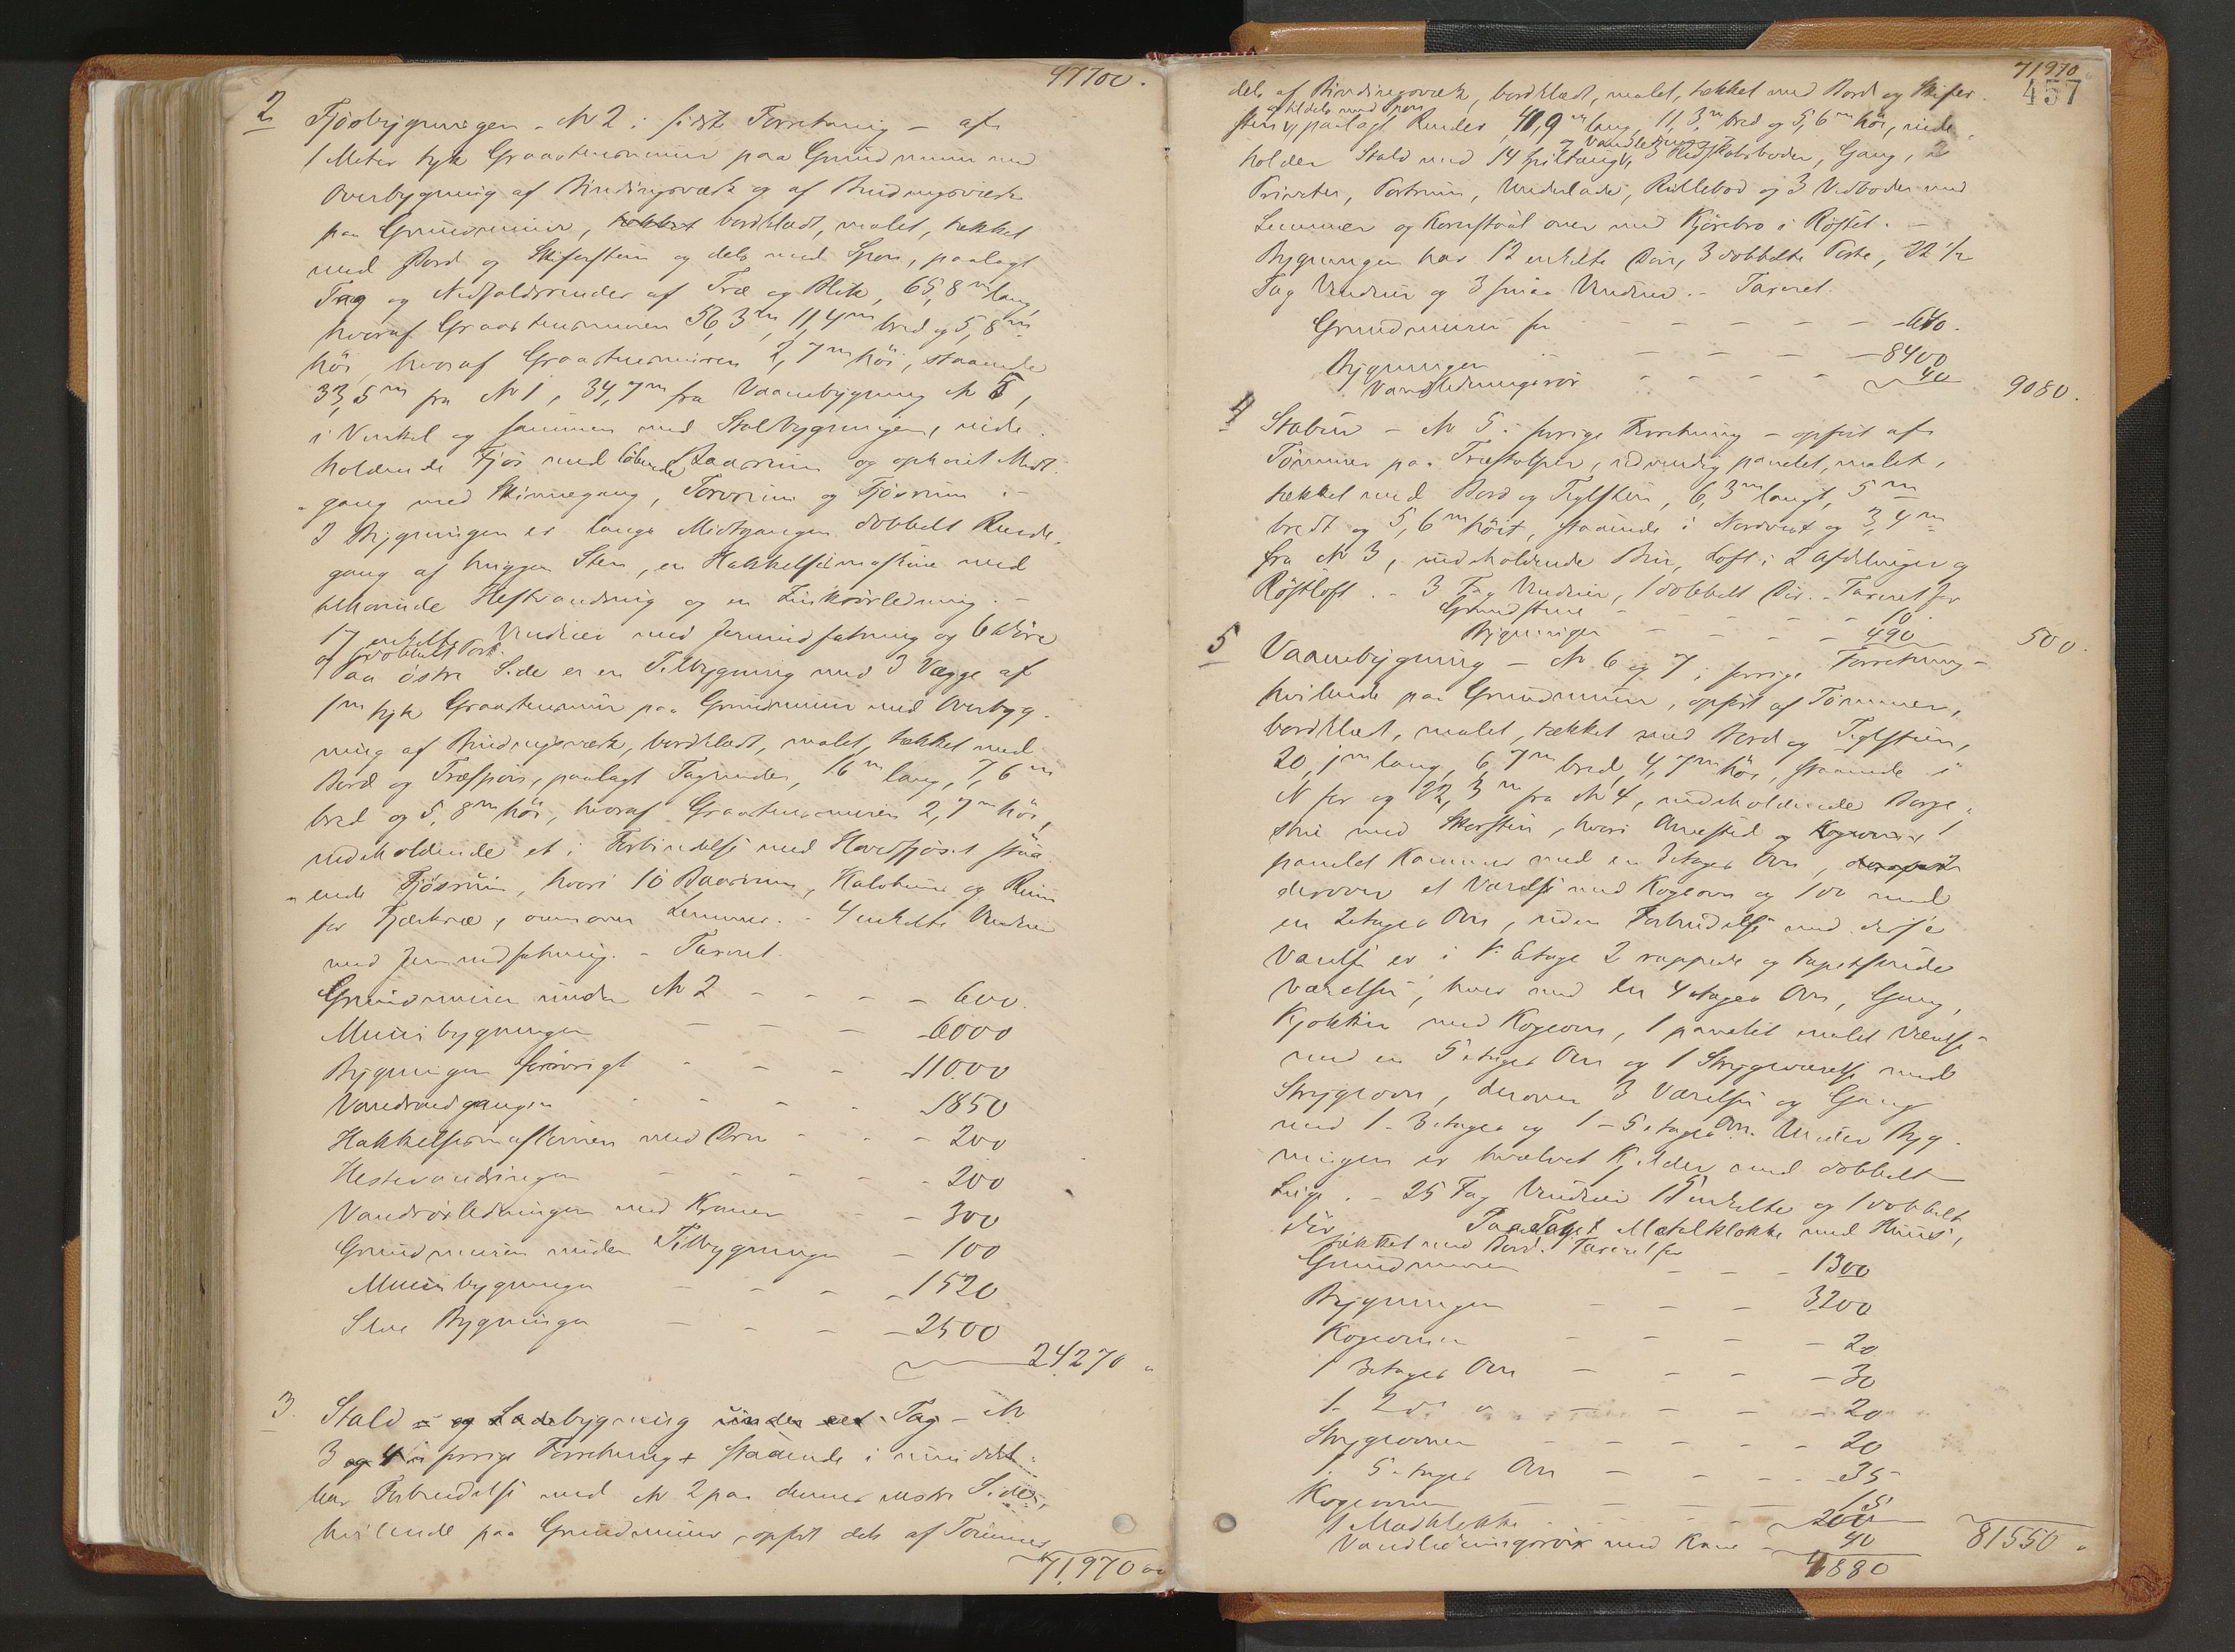 47700.
2 Fjøsbygningen - No 2 i sidste Forretning - af
1 Meter tyk Graastensmuur paa Grundmuur med
Overbygning af Bindingsværk og af Bindingsværk
paa Grundmuur, bordklædt, malet, tækket
med Bord og Skifersten og dels med Spon, paalagt
Tag og Nedfaldsrender af Træ og Blik, 65,8 m lang,
hvoraf Graastensmuren 56,3 m, 11,4 m bred og 5,8 m
høi, hvoraf Graastensmuren 2,7 m høi, staaende
33,5 m fra No 1, 34,7 m fra Vaaneбygning No 5,
i Vinkel og sammen med Staldbygningen, inde-
holdende Fjøs med løbende Baasrum og ophøiet Midt-
gang med Skinnegang, Forrum og Fjøsrum. -
I Bygningen er langs Midtgangen dobbelt Rende-
gang af huggen Sten, en Hakkelsemaskine med
tilhørende Hestvandring og en Zinkrørledning. -
17 enkelte Vinduer med Jernindfatning og 6 Døre
og 1 dobbelt Port.
Paa østre Side er en Tilbygning med 3 Vægge af
1 m tyk Graastensmuur paa Grundmuur med Overbyg-
ning af Bindingsværk, bordklædt, malet, tækket med
Bord og Træspon, paalagt Tagrender, 16 m lang, 7,6 m
bred og 5,8 m høi, hvoraf Graastensmuren 2,7 m høi,
indeholdende et i Forbindelse med Hovedfjøset staa-
ende Fjøsrum, hvori 10 Baasrum, Kalvbinge og Rum
for Fjærkræ, ovenover Lemmer. - 4 enkelte Vinduer
med Jernindfatning. - Taxeret
Grundmuren under No 2 - - - - 600.
Muurbygningen - - - 6000
Bygningen forøvrigt - - - 11000
Vandrendgangen - - - - 1850
Hakkelsemaskinen med Drev - - - 200
Hestevandringen - - - - 200
Vandrørledningen med Kraner - - 300
Grundmuren under Tilbygningen - 100
Muurbygningen - - - - 1520
Selve Bygningen - - - - 2500
24270 "
3. Stald - og Ladebygning under eet Tag - No
3 og 4 i forrige Forretning + staaende i umiddel-
bar Forbindelse med No 2 paa dennes vestre Side,
hvilende paa Grundmuur, opført dels af Tømmer
71,970 "
71970
457
dels af Bindingsværk, bordklædt, malet, tækket med Bord og Skifer-
og tildels med Spon
sten, paalagt Render, 40,9 m lang, 11,3 m bred og 5,6 m høi, inde-
og Vandledning
holder Stald med 14 Spiltaug, 3 Redskabsboder, Gang, 2
Priveter, Portrum, Underlade, Rullebod og 3 Vedboder med
Lemmer og Kornstaal over med Kjørebro i Røstet. -
Bygningen har 12 enkelte Døre, 3 dobbelte Porte, 12 1/2
Fag Vinduer og 3 smaa Vinduer. - Taxeret
Grundmuren for - - - - - 640.
Bygningen - - - - 8400
Vandledningsrør - - - - 40
9080.
4 Stabur - No 5 i forrige Forretning - opført af
Tømmer paa Træstolper, udvendig panelet, malet,
tækket med Bord og Teglsten, 6,3 m langt, 5 m
bredt og 5,6 m høit, staaende i Nordvest og 3,4 m
fra No 3, indeholdende Bur, Loft i 2 Afdelinger og
Røstloft. - 3 Fag Vinduer, 1 dobbelt Dør. - Taxeret for
Grundstene - - - - - 10.
Bygningen - - - - 490
500.
5 Vaanebygning - No 6 og 7 i forrige Forretning -
hvilende paa Grundmuur, opført af Tømmer,
bordklædt, malet, tækket med Bord og Teglsten,
20,1 m lang, 6,7 m bred, 4,7 m høi, staaende i
N for og 22,3 m fra No 4, indeholdende Borge-
stue med Skorsten, hvori Arnested og Kogeovn, 1
panelet Kammer med en 3 etages Ovn,
derover et Værelse med Kogeovn og 1 do med
en 2 etages Ovn, uden Forbindelse med disse
Værelser er i 1. Etage 2 rappede og tapetserede
Værelser, hver med en 4 etages Ovn, Gang,
Kjøkken med Kogeovn, 1 panelet malet Værelse
med en 5 etages Ovn og 1 Strygeværelse med
Strygeovn, derover 3 Værelser og Gang
med 1 - 3 etages og 1 - 5 etages Ovn. Under Byg-
ningen er hvælvet Kjelder med dobbelt
Luge. - 25 Fag Vinduer 15 enkelte og 1 dobbelt
Dør. Paa Taget Metalklokke med Huus,
tækket med Bord. Taxeret for
Grundmuren - - - 1300
Bygningen - - - 3200
Kogeovnen - - - - 20
1 3 etages Ovn - - - - 30
1 - 2 do " - - - - 20
Strygeovnen - - - - - 20
1. 5 - etages Ovn - - - - 35
Kogeovnen - - - - 15
1 Madklokke - - - - 200
Vandledningsrør med Kran - 40
4880
81550 "